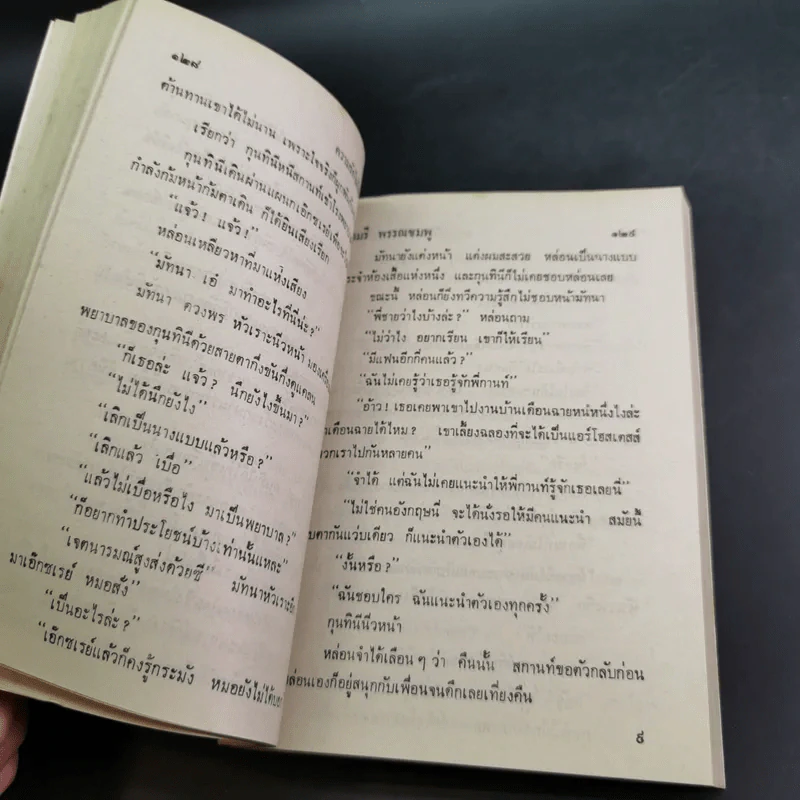 ๑๒๘
ต้านทานเขาได้ไม่นาน เพราะใจจริง
เรียกว่า กุนทินีหนีสกานท์เข้าโรง
กุนทินีเดินผ่านแผนกเอ็กซเรย์
กำลังก้มหน้าก้มตาเดิน ก็ได้ยินเสียงเรียก
“แจ๋ว! แจ๋ว!”
หล่อนเหลียวหาที่มาแห่งเสียง
“มัทนา เอ๋ มาทำอะไรที่นี่น่ะ?”
มัทนา ดวงพร หัวเราะนิ่วหน้า
พยาบาลของกุนทินีด้วยสายตากึ่งขันกึ่งดูแคลน
“ก็เธอล่ะ แจ๋ว? นึกยังไงขึ้นมา?”
“ไม่ได้นึกยังไง”
“เลิกเป็นนางแบบแล้วหรือ?”
“เลิกแล้ว เบื่อ”
“แล้วไม่เบื่อหรือไง มาเป็นพยาบาล?”
“ก็อยากทำประโยชน์บ้างเท่านั้นแหละ”
“เจตนารมณ์สูงส่งด้วยซี” มัทนาหัวเราะ
มาเอ็กซเรย์ หมอสั่ง”
“เป็นอะไรล่ะ?”
“เอ็กซเรย์แล้วก็คงรู้กระมัง หมอยังไม่ได้บอก
พรรณชมพู
๑๒๙
มัทนายังแต่งหน้า แต่งผมสะสวย หล่อนเป็นนางแบบ
ประจำห้องเสื้อแห่งหนึ่ง และกุนทินีก็ไม่เคยชอบหล่อนเลย
ขณะนี้ หล่อนก็ยิ่งทวีความรู้สึกไม่ชอบหน้ามัทนา
“พี่ชายว่าไงบ้างล่ะ?” หล่อนถาม
“ไม่ว่าไง อยากเรียน เขาก็ให้เรียน”
“มีแฟนอีกกี่คนแล้ว?”
“ฉันไม่เคยรู้ว่าเธอรู้จักพี่กานท์”
“อ้าว! เธอเคยพาเขาไปงานบ้านเดือนฉายหนหนึ่งไงล่ะ
เดือนฉายได้ไหม? เขาเลี้ยงฉลองที่จะได้เป็นแอร์โฮสเตสส์
พวกเราไปกันหลายคน”
“จำได้ แต่ฉันไม่เคยแนะนำให้พี่กานท์รู้จักเธอเลยนี่”
“ไม่ใช่คนอังกฤษนี่ จะได้นั่งรอให้มีคนแนะนำ สมัยนี้
สบตากันแว่บเดียว ก็แนะนำตัวเองได้”
“งั้นหรือ?”
“ฉันชอบใคร ฉันแนะนำตัวเองทุกครั้ง”
กุนทินีนิ่วหน้า
หล่อนจำได้เลือน ๆ ว่า คืนนั้น สกานท์ขอตัวกลับก่อน
หล่อนเองก็อยู่สนุกกับเพื่อนจนดึกเลยเที่ยงคืน
๙